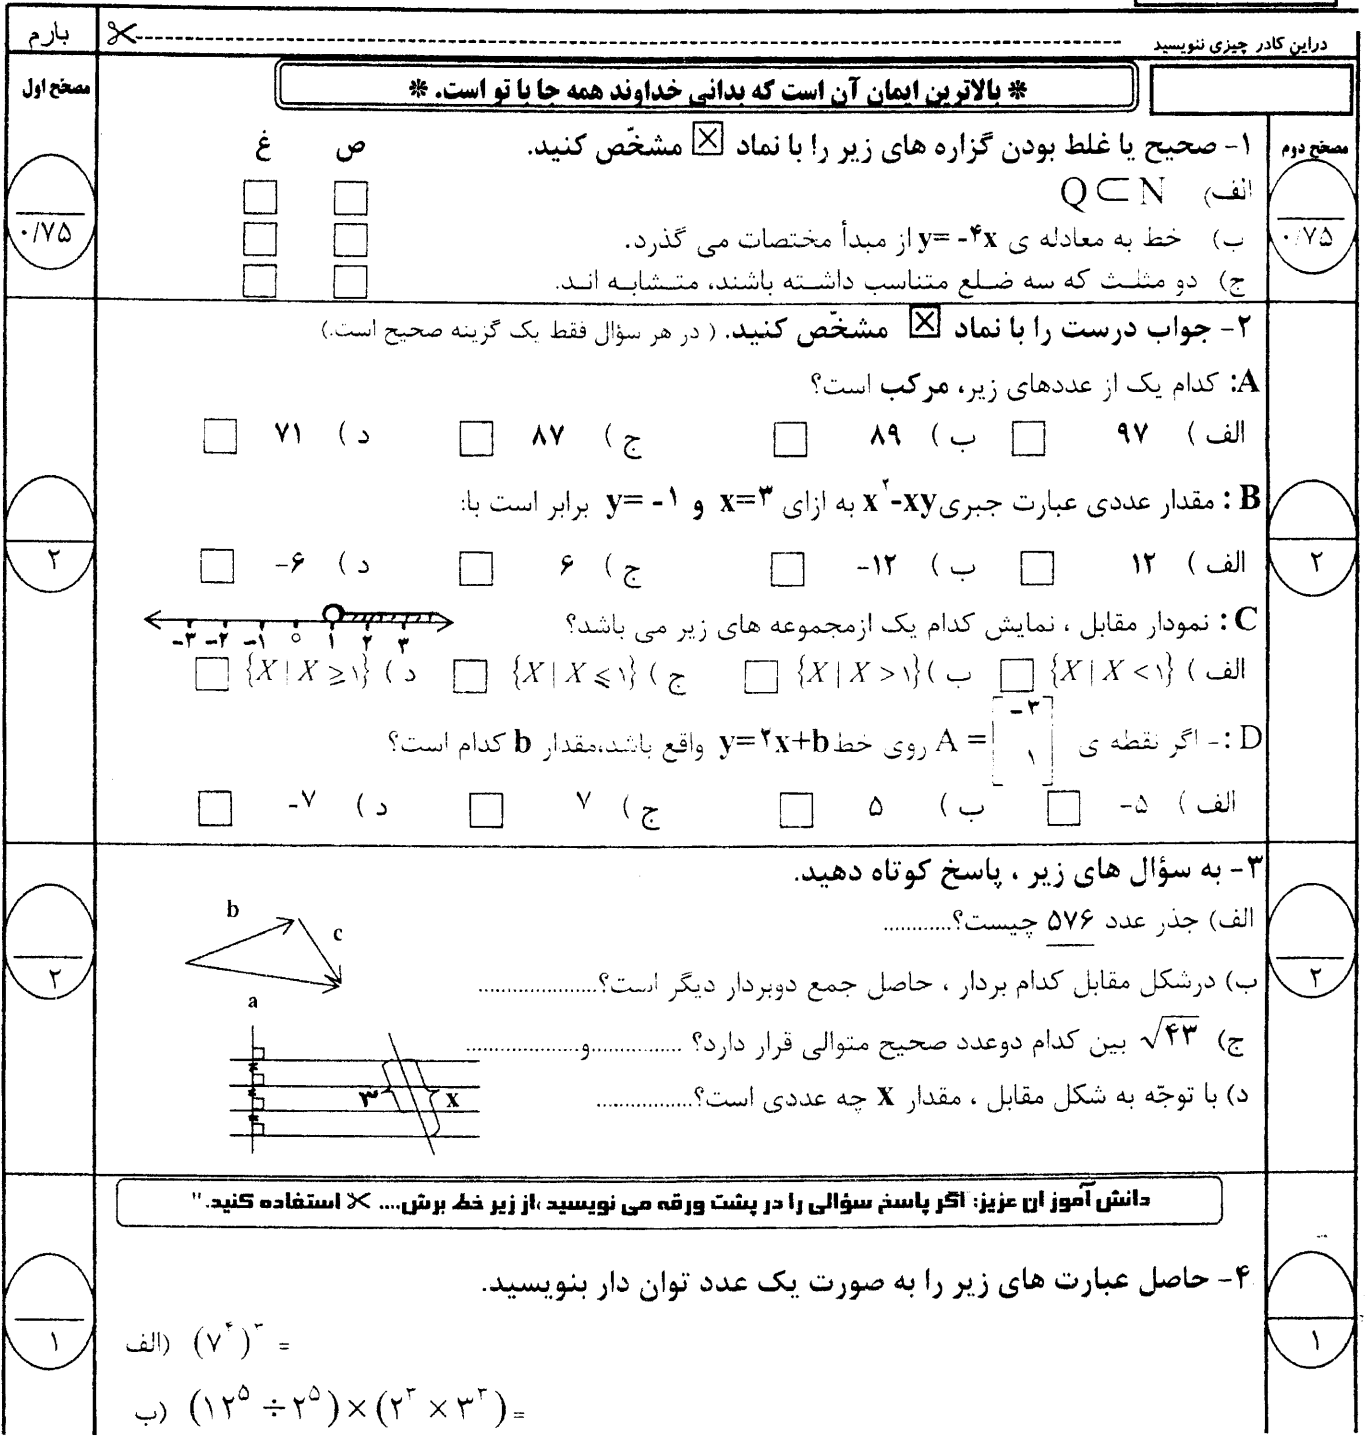 بارم
دراین کادر چیزی ننویسید
مصحّح اول
* بالاترین ایمان آن است که بدانی خداوند همه جا با تو است. *
مصحّح دوم
۱- صحیح یا غلط بودن گزاره های زیر را با نماد ☒ مشخّص کنید. ص غ
الف) Q ⊂ N
ب) خط به معادله ی y= -۴x از مبدأ مختصات می گذرد.
ج) دو مثلث که سه ضلع متناسب داشته باشند، متشابه اند.
۰/۷۵
۰/۷۵
۲- جواب درست را با نماد ☒ مشخّص کنید. ( در هر سؤال فقط یک گزینه صحیح است.)
A: کدام یک از عددهای زیر، مرکب است؟
الف ) ۹۷ □ ب ) ۸۹ □ ج ) ۸۷ □ د ) ۷۱ □
B : مقدار عددی عبارت جبری x²-xy به ازای x=۳ و y= -۱ برابر است با:
الف ) ۱۲ □ ب ) -۱۲ □ ج ) ۶ □ د ) -۶ □
۲
۲
C : نمودار مقابل ، نمایش کدام یک ازمجموعه های زیر می باشد؟
-۳ -۲ -۱ ۰ ۱ ۲ ۳
الف ) {X | X < ۱} □ ب ) {X | X > ۱} □ ج ) {X | X ⩽ ۱} □ د ) {X | X ⩾ ۱} □
D :- اگر نقطه ی A = [-۳ ۱] روی خط y=۲x+b واقع باشد،مقدار b کدام است؟
الف ) -۵ □ ب ) ۵ □ ج ) ۷ □ د ) -۷ □
۳- به سؤال های زیر ، پاسخ کوتاه دهید.
الف) جذر عدد ۵۷۶ چیست؟............
b
c
a
ب) درشکل مقابل کدام بردار ، حاصل جمع دوبردار دیگر است؟.....................
۲
۲
ج) √۴۳ بین کدام دوعدد صحیح متوالی قرار دارد؟ ................و....................
د) با توجّه به شکل مقابل ، مقدار x چه عددی است؟.................
۳ x
دانش آموز ان عزیز: اگر پاسخ سؤالی را در پشت ورقه می نویسید ،از زیر خط برش.... ✂ استفاده کنید."
۴- حاصل عبارت های زیر را به صورت یک عدد توان دار بنویسید.
الف) (۷⁴)³ =
ب) (۱۲⁵ ÷ ۲⁵) × (۲³ × ۳³) =
۱
۱